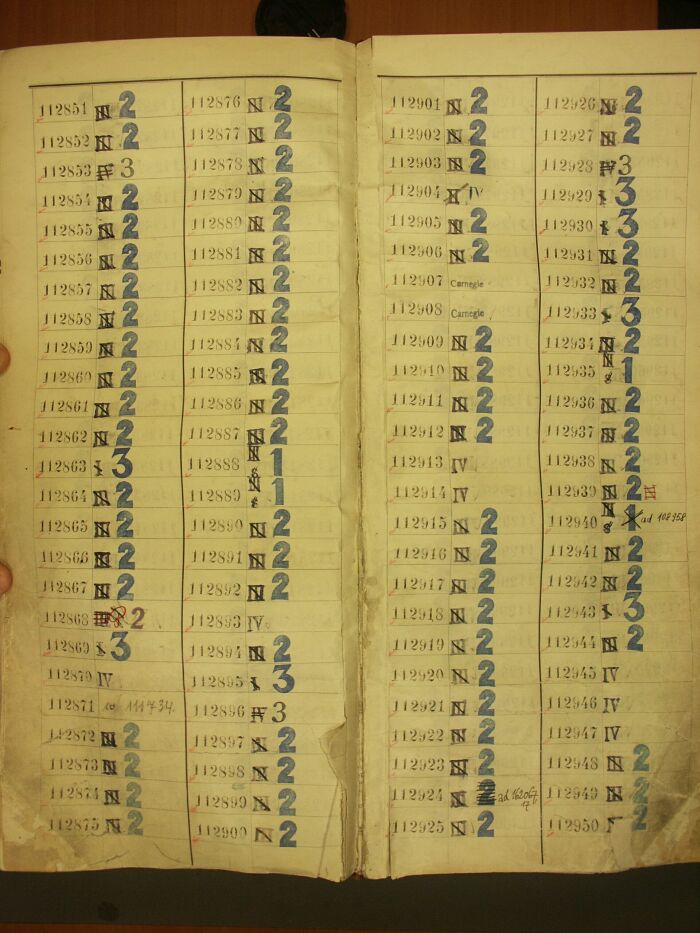 112851 2
112852 2
112853 3
112854 2
112855 2
112856 2
112857 2
112858 2
112859 2
112860 2
112861 2
112862 2
112863 3
112864 2
112865 2
112866 2
112867 2
112868 2
112869 3
112870 IV
112871 111734.
112872 2
112873 2
112874 2
112875 2
112876 2
112877 2
112878 2
112879 2
112880 2
112881 2
112882 2
112883 2
112884 2
112885 2
112886 2
112887 2
112888 1
112889 1
112890 2
112891 2
112892 2
112893 IV
112894 2
112895 3
112896 3
112897 2
112898 2
112899 2
112900 2
112901 2
112902 2
112903 2
112904 IV
112905 2
112906 2
112907 Carnegie
112908 Carnegie
112909 2
112910 2
112911 2
112912 2
112913 IV
112914 IV
112915 2
112916 2
112917 2
112918 2
112919 2
112920 2
112921 2
112922 2
112923 2
112924 2 ad
112925 2
112926 2
112927 2
112928 3
112929 3
112930 3
112931 2
112932 2
112933 3
112934 2
112935 1
112936 2
112937 2
112938 2
112939 2
112940 1 ad 108958
112941 2
112942 2
112943 3
112944 2
112945 IV
112946 IV
112947 IV
112948 2
112949 2
112950 2